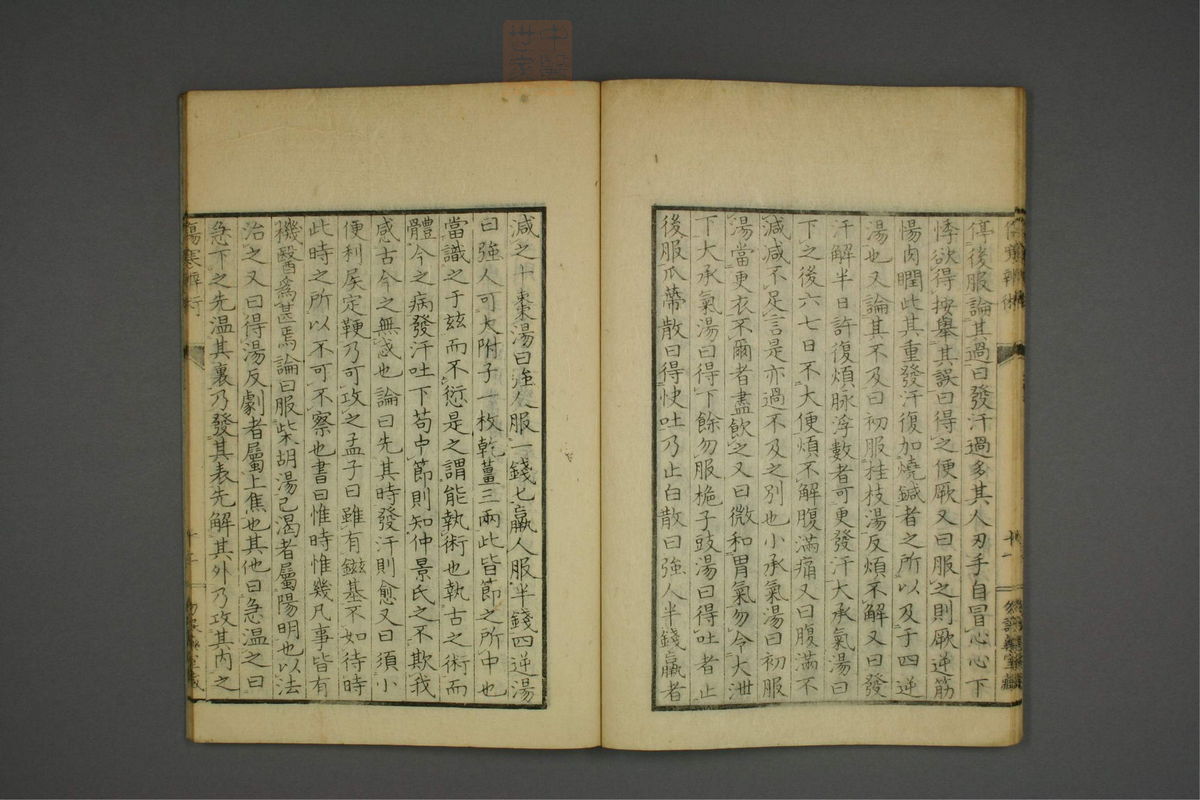 停後服論其過曰發汗過多其人叉手自冒心心下
悸欲得按舉其誤曰得之便厥又曰服之則厥逆筋
惕肉瞤此其重發汗復加燒鍼者之所以及于四逆
湯也又論其不及曰初服桂枝湯反煩不解又曰發
汗解半日許復煩脉浮數者可更發汗大承氣湯曰
下之後六七日不大便煩不解腹滿痛又曰腹滿不
減減不足言是亦過不及之別也小承氣湯曰初服
湯當更衣不爾者盡飲之又曰微和胃氣勿令大泄
下大承氣湯曰得下餘勿服梔子豉湯曰得吐者止
後服瓜蔕散曰得快吐乃止白散曰強人半錢羸者
減之十棗湯曰強人服一錢匕羸人服半錢四逆湯
曰強人可大附子一枚乾薑三兩此皆節之所中也
當識之于茲而不愆是之謂能執術也執古之術而
體今之病發汗吐下苟中節則知仲景氏之不欺我
感古今之無惑也論曰先其時發汗則愈又曰須小
便利屎定鞕乃可攻之孟子曰雖有鎡基不如待時
此時之所以不可不察也書曰惟時惟幾凡事皆有
機醫爲甚焉論曰服柴胡湯已渴者屬陽明也以法
治之又曰得湯反劇者屬上焦也其他曰急溫之曰
急下之先溫其裏乃發其表先解其外乃攻其內之
傷寒